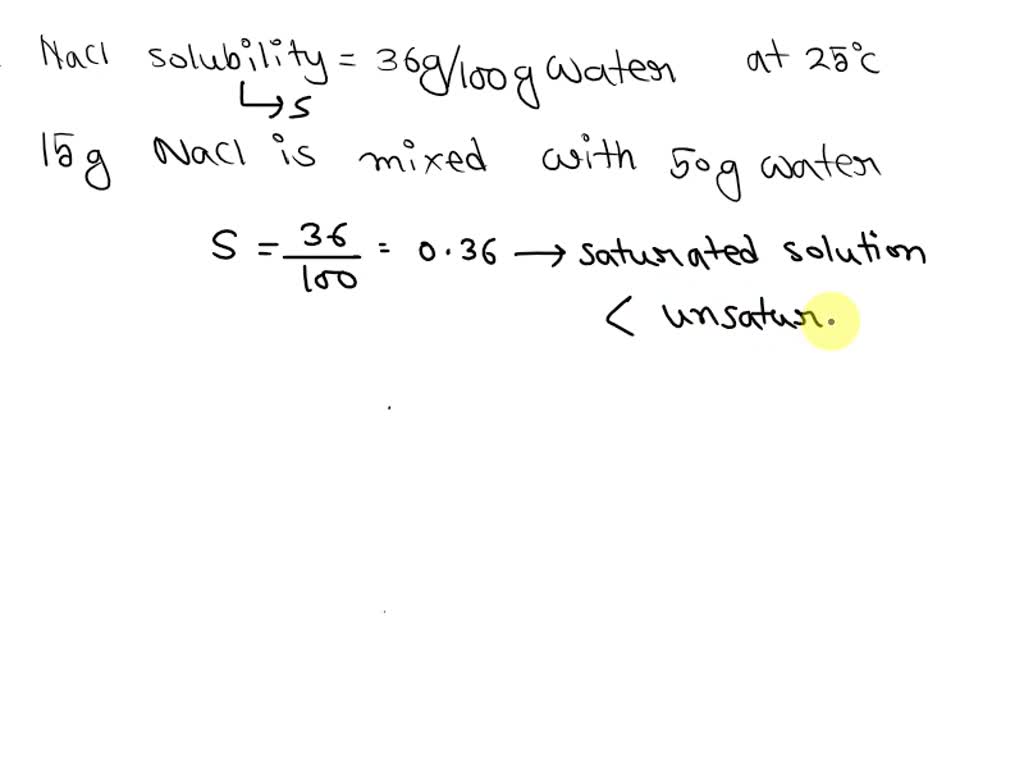 NaCl solubility = 36g/100g water at 25°C
↳ S
15g NaCl is mixed with 50g water
S = 36/100 = 0.36 → saturated solution
< unsatur.